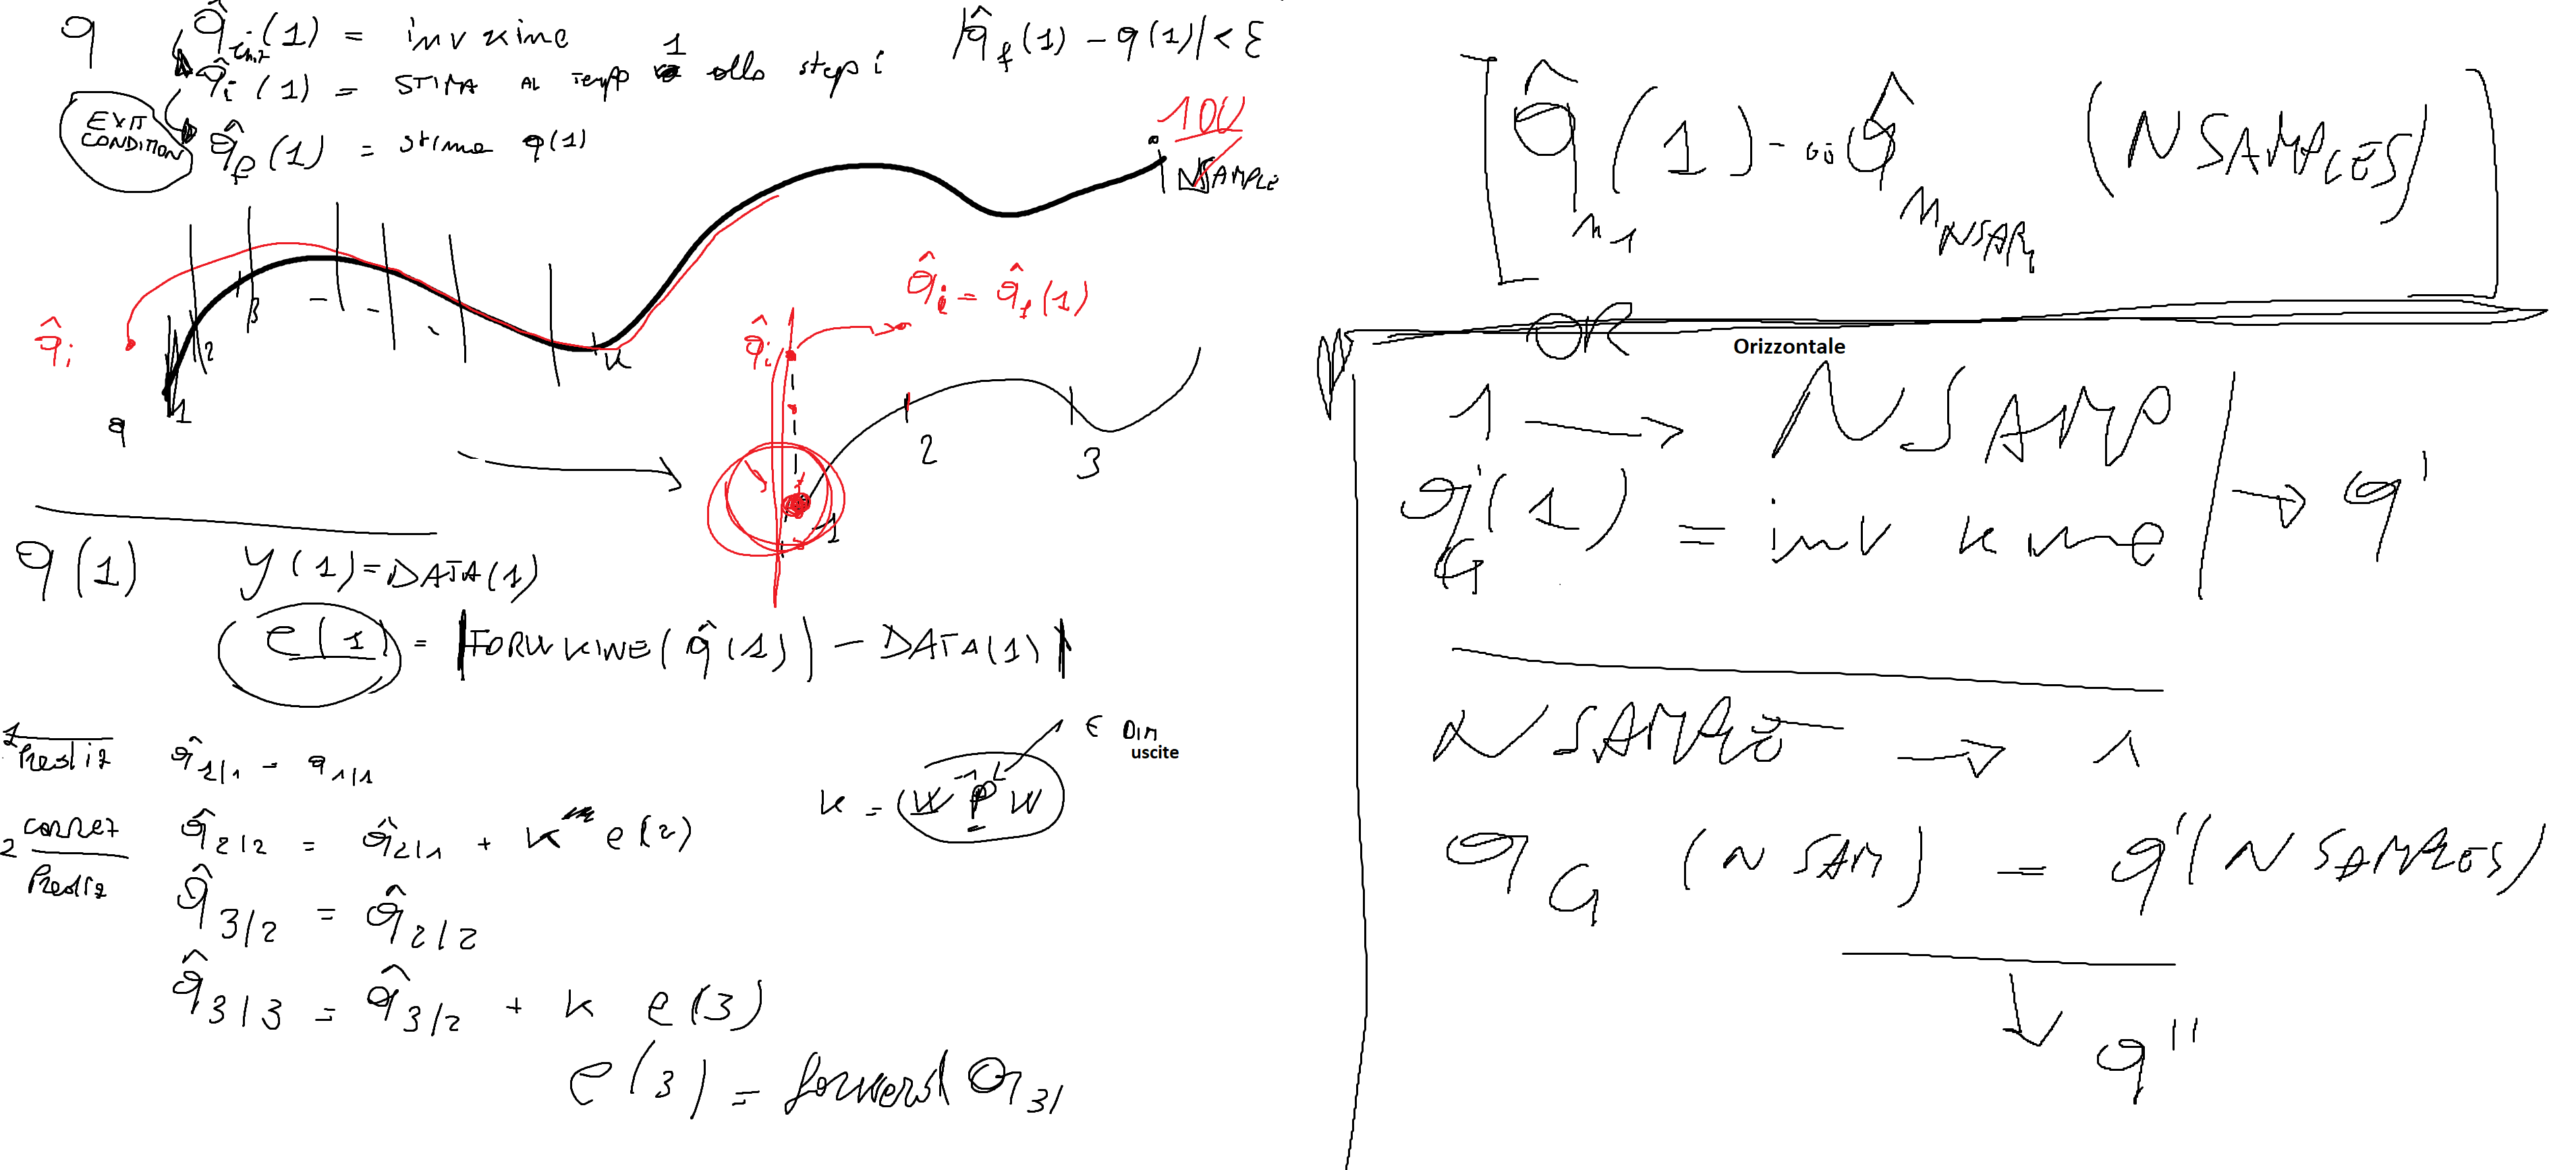 q
q̂init(1) = inv kine
q̂i(1) = STIMA AL Tempo 1 allo step i
|q̂f(1) - q(1)| < ε
EXIT CONDITION
q̂f(1) = stima q(1)
100
NSAMPLE
q̂i
q
1
2
3
- - -
k
q̂i
q̂i = q̂f(1)
1
2
3
q(1) y(1) = DATA(1)
e(1) = |FORW KINE(q̂(1)) - DATA(1)|
1 Brediz q̂2|1 = q1|1
2 correz q̂2|2 = q̂2|1 + K e(2)
Prediz
q̂3|2 = q̂2|2
q̂3|3 = q̂3|2 + K e(3)
e(3) = forward q3|
K = (W P⁻¹ W)
∈ Dim
uscite
[q̂n1(1) - ... q̂nNSAM (NSAMPLES)]
OR
Orizzontale
1 → NSAMP
q'G(1) = inv kine → q'
NSAMPLE → 1
qG (NSAM) = q'(NSAMPLES)
↓ q''